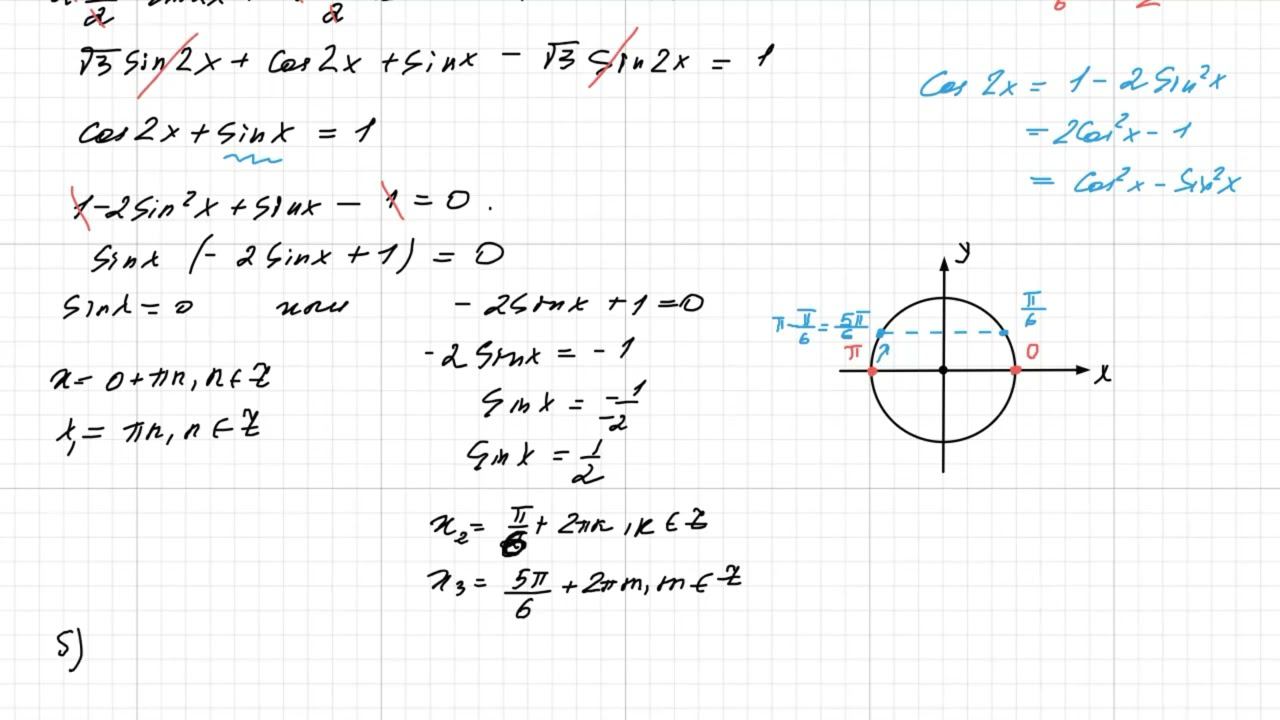 √3 sin2x + cos2x + sinx − √3 sin2x = 1
cos2x + sinx = 1
1−2sin²x + sinx − 1 = 0.
sinx (− 2sinx + 1) = 0
sinx = 0 или − 2sinx + 1 = 0
x = 0 + πn, n ∈ Z
x₁ = πn, n ∈ Z
-2 sinx = − 1
sinx = −1/−2
sinx = 1/2
x₂ = π/6 + 2πk, k ∈ Z
x₃ = 5π/6 + 2πm, m ∈ Z
б)
cos 2x = 1 − 2sin²x
= 2cos²x − 1
= cos²x − sin²x
y
π/6
π − π/6 = 5π/6
π
0
x